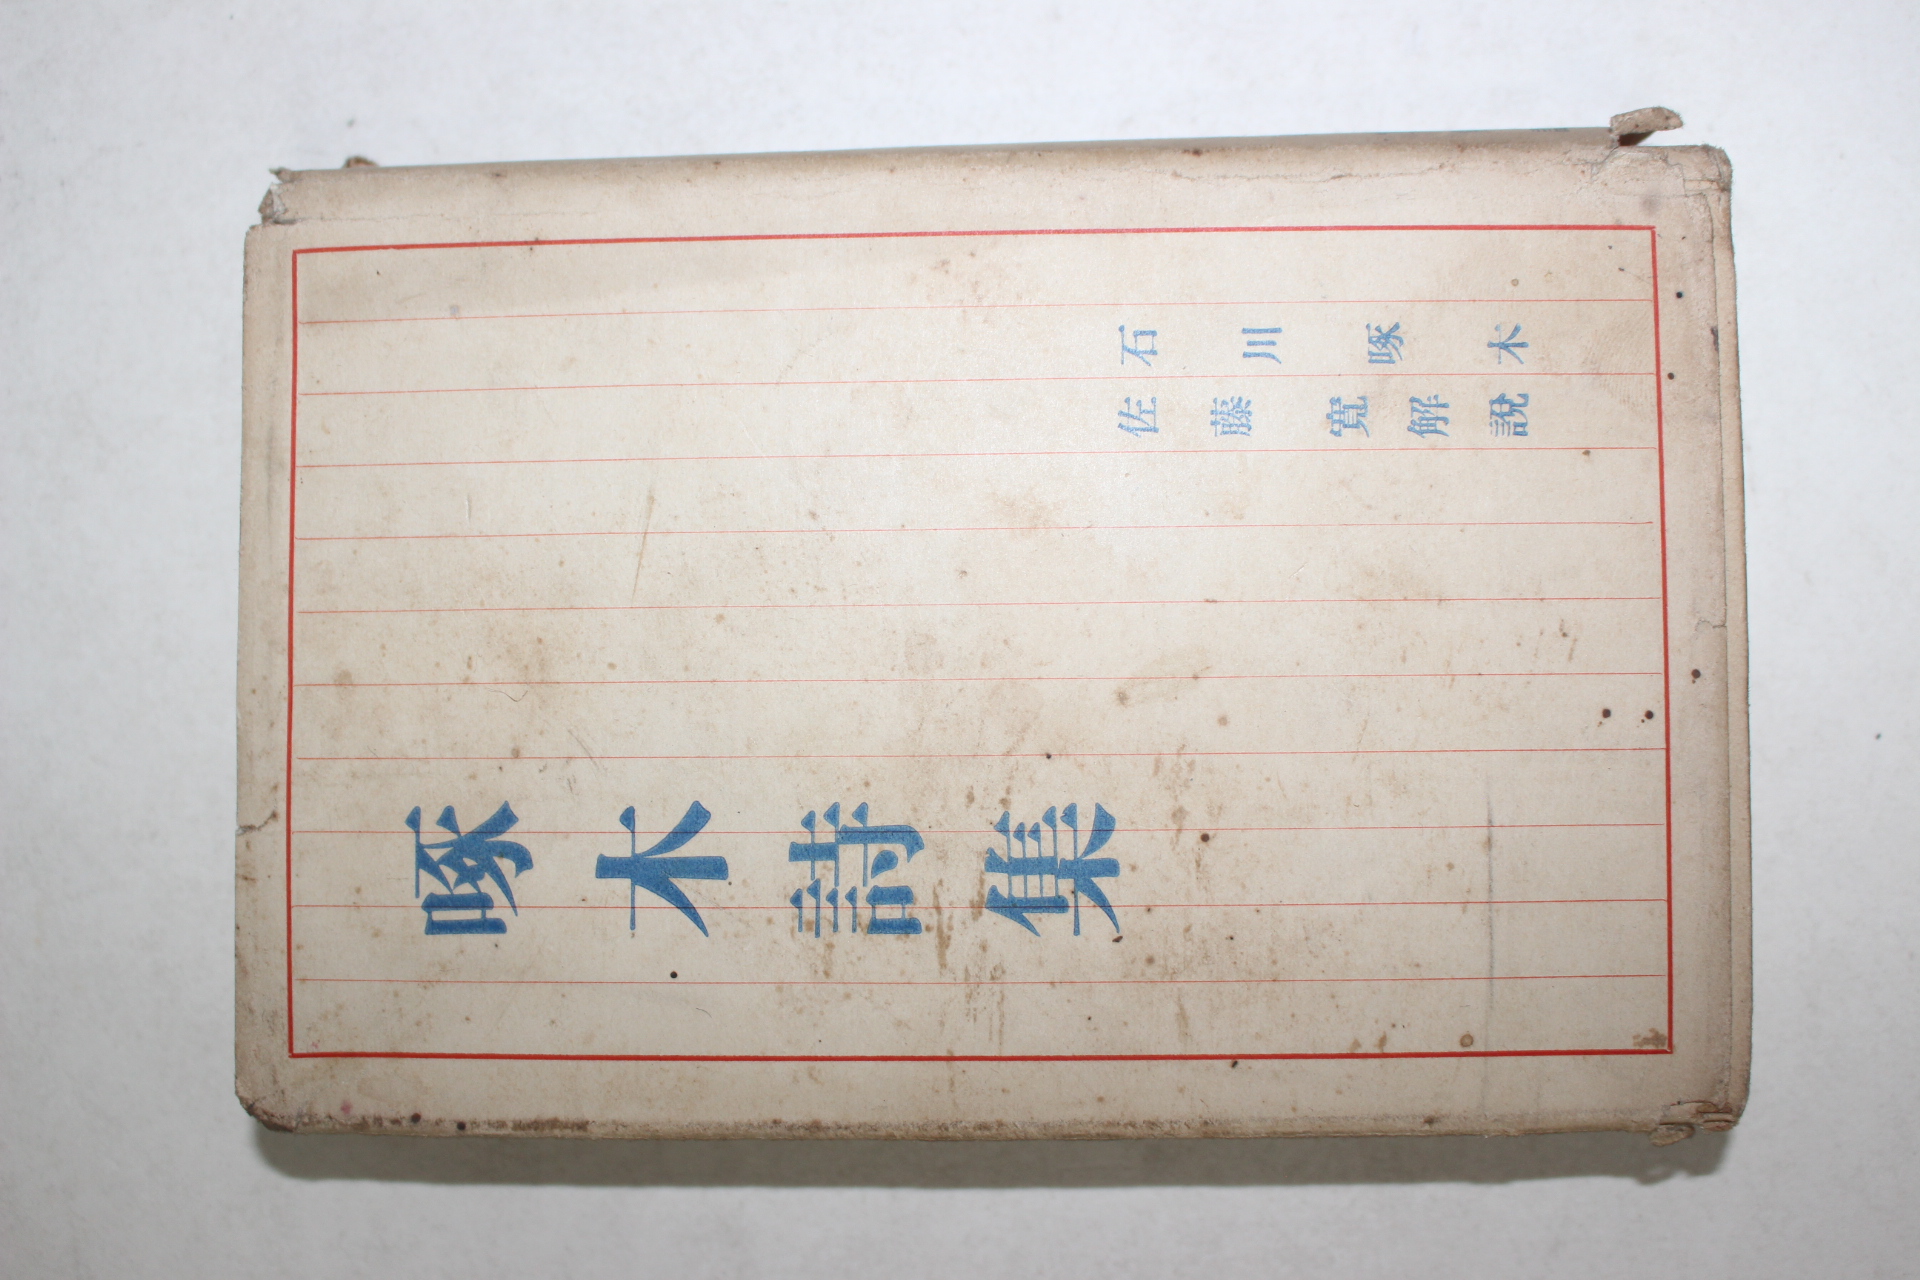 啄木詩集
石川啄木
佐藤寛解説